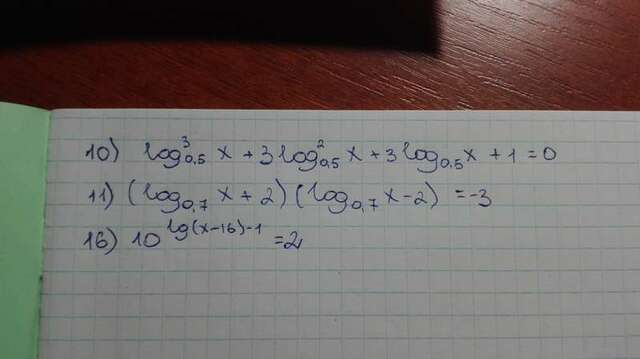 10) log³₀,₅ x + 3 log²₀,₅ x + 3 log₀,₅ x + 1 = 0
11) (log₀,₇ x + 2) (log₀,₇ x - 2) = -3
16) 10^(lg(x-16)-1) = 2